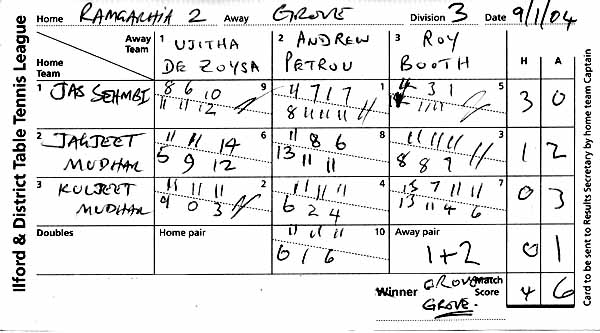 Ilford & District Table Tennis League
Home RAMGARHIA 2 Away GROVE Division 3 Date 9/1/04
Away Team 1 UJITHA DE ZOYSA 2 ANDREW PETROU 3 ROY BOOTH H A
Home Team
1 JAS SEHMBI 9 1 5 3 0
8 6 10 4 7 1 7 4 3 1
11 11 12 8 11 11 11 11 11 11
2 JAGJEET MUDHAR 6 8 3 1 2
11 11 14 11 8 6 11 11 11
5 9 12 13 11 11 8 8 7
3 KULJEET MUDHAR 2 4 7 0 3
11 11 11 11 11 11 15 7 11 11
9 0 3 6 2 4 13 11 4 6
Doubles Home pair 10 Away pair 0 1
11 11 11 1+2
6 1 6
Winner GROVE Match Score 4 6
GROVE.
Card to be sent to Results Secretary by home team Captain